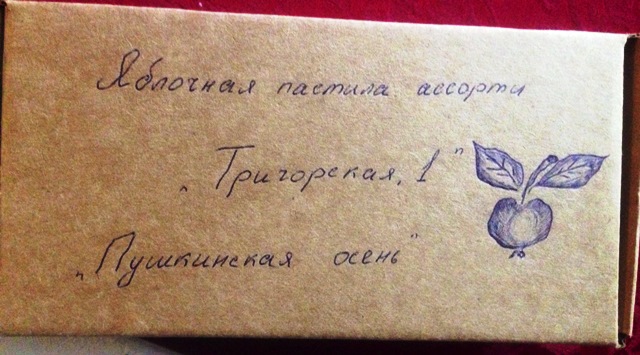 Яблочная пастила ассорти
„Тригорская, 1"
„Пушкинская осень"